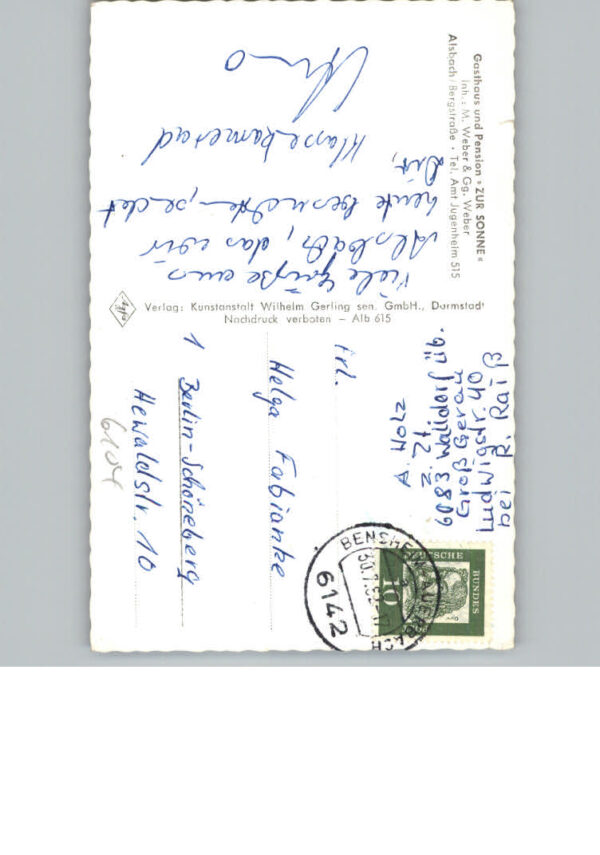 Gasthaus und Pension »ZUR SONNE«
Inh.: M. Weber & Gg. Weber
Alsbach/Bergstraße · Tel. Amt Jugenheim 515
Viele Grüße aus
Alsbach, das wir
heute
Dir,
Klassenkamerad
Agfa
Verlag: Kunstanstalt Wilhelm Gerling sen. GmbH., Darmstadt
Nachdruck verboten – Alb 615
A. Holz
z. Zt.
6083 Walldorf üb.
Groß Gerau
Ludwigstr. 40
bei R. Raiß
Frl.
Helga Fabianke
1 Berlin-Schöneberg
Hewaldstr. 10
6104
DEUTSCHE
BUNDES
10
BENSHEIM-AUERBACH
6142